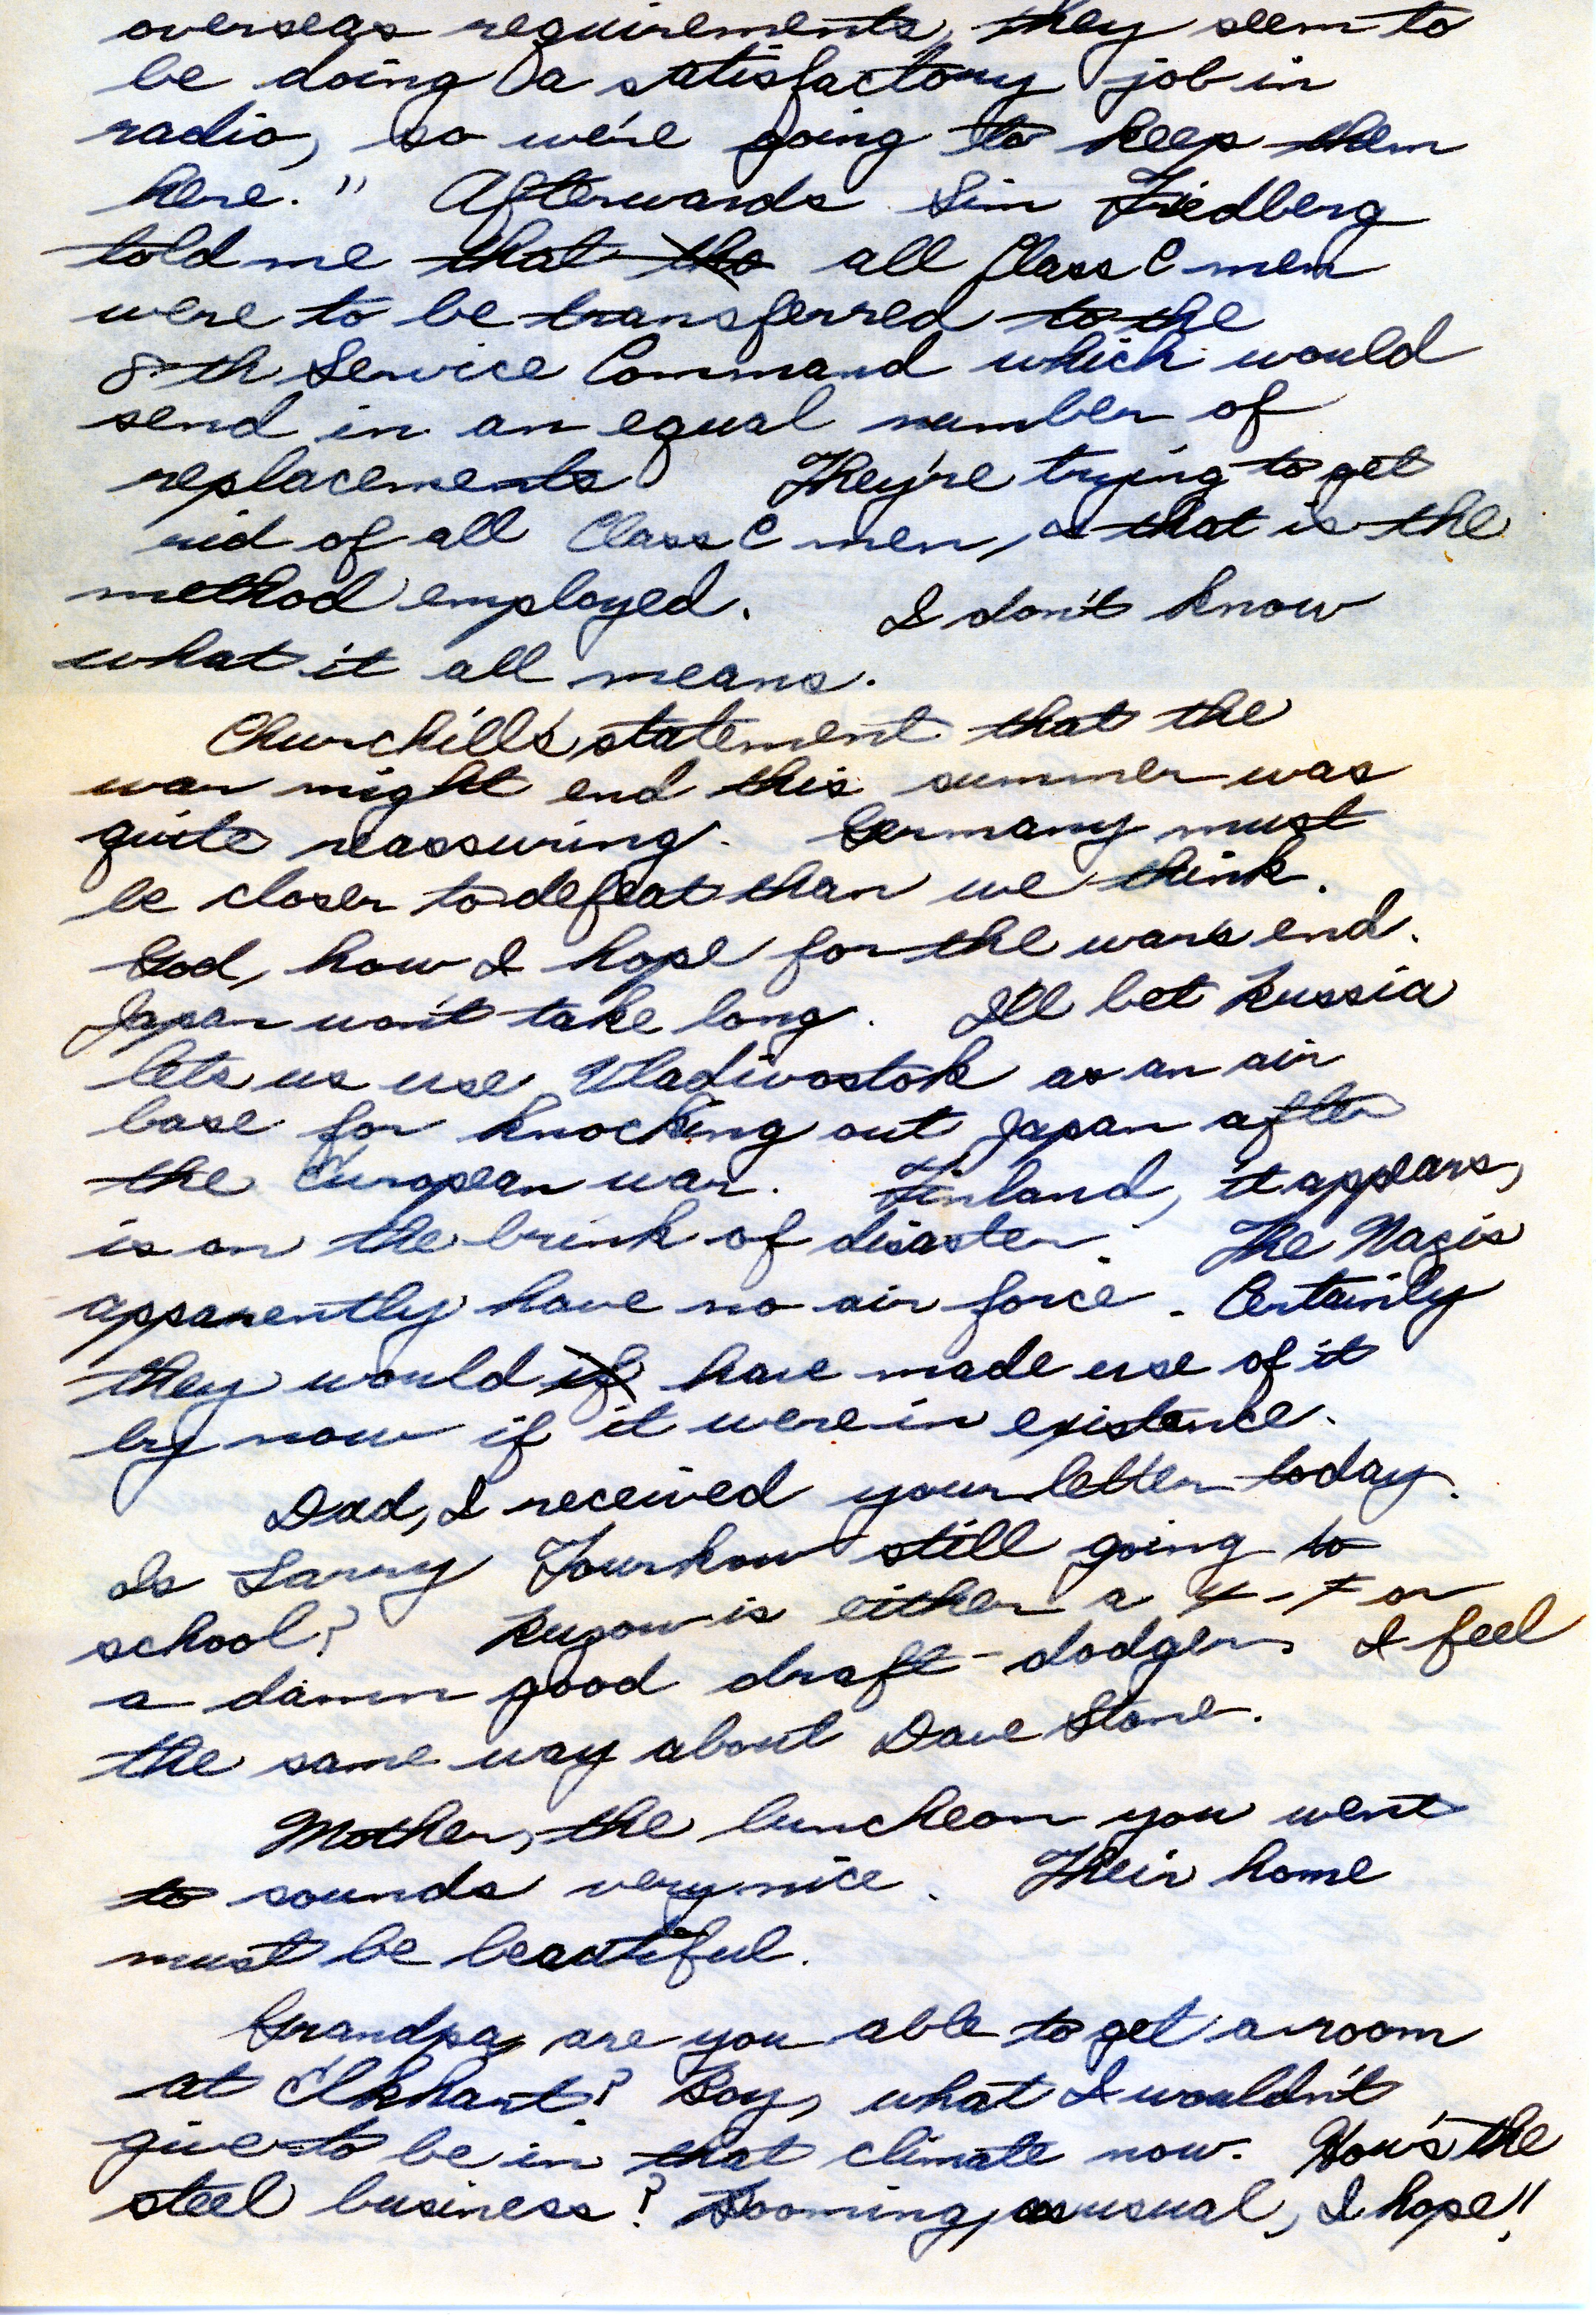 overseas requirements, they seem to
be doing a satisfactory job in
radio, so we're going to keep them
here." Afterwards Sim Friedberg
told me that tho all Class C men
were to be transferred to the
8th Service Command which would
send in an equal number of
replacements. They're trying to get
rid of all Class C men, & that is the
method employed. I don't know
what it all means.
Churchill's statement that the
war might end this summer was
quite reassuring. Germany must
be closer to defeat than we think.
God, how I hope for the war's end.
Japan won't take long. I'll bet Russia
lets us use Vladivostok as an air
base for knocking out Japan after
the European war. Finland, it appears,
is on the brink of disaster. The Nazis
apparently have no air force. Certainly
they would if have made use of it
by now if it were in existence.
Dad, I received your letter today.
Is Larry Tourkow still going to
school? Rugow is either a 4-F or
a damn good draft-dodger. I feel
the same way about Dave Stone.
Mother, the luncheon you went
to sounds very nice. Their home
must be beautiful.
Grandpa, are you able to get a room
at Elkhart? Boy, what I wouldn't
give to be in that climate now. How's the
steel business? Booming, as usual, I hope!!